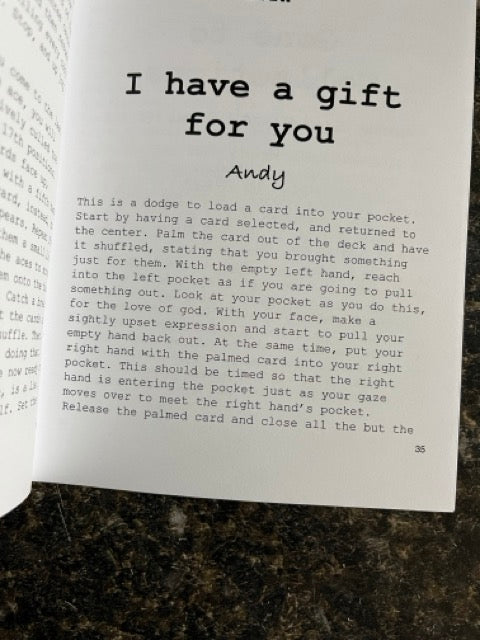 stop, and
come to the
ace, you will
17th
with a
card, instead,
them a small
the aces to
Catch a
the
doing
now
I have a gift
for you
Andy
This is a dodge to load a card into your pocket.
Start by having a card selected, and returned to
the center. Palm the card out of the deck and have
it shuffled, stating that you brought something
just for them. With the empty left hand, reach
into the left pocket as if you are going to pull
something out. Look at your pocket as you do this,
for the love of god. With your face, make a
sightly upset expression and start to pull your
empty hand back out. At the same time, put your
right hand with the palmed card into your right
pocket. This should be timed so that the right
hand is entering the pocket just as your gaze
moves over to meet the right hand's pocket.
Release the palmed card and close all the but the
35